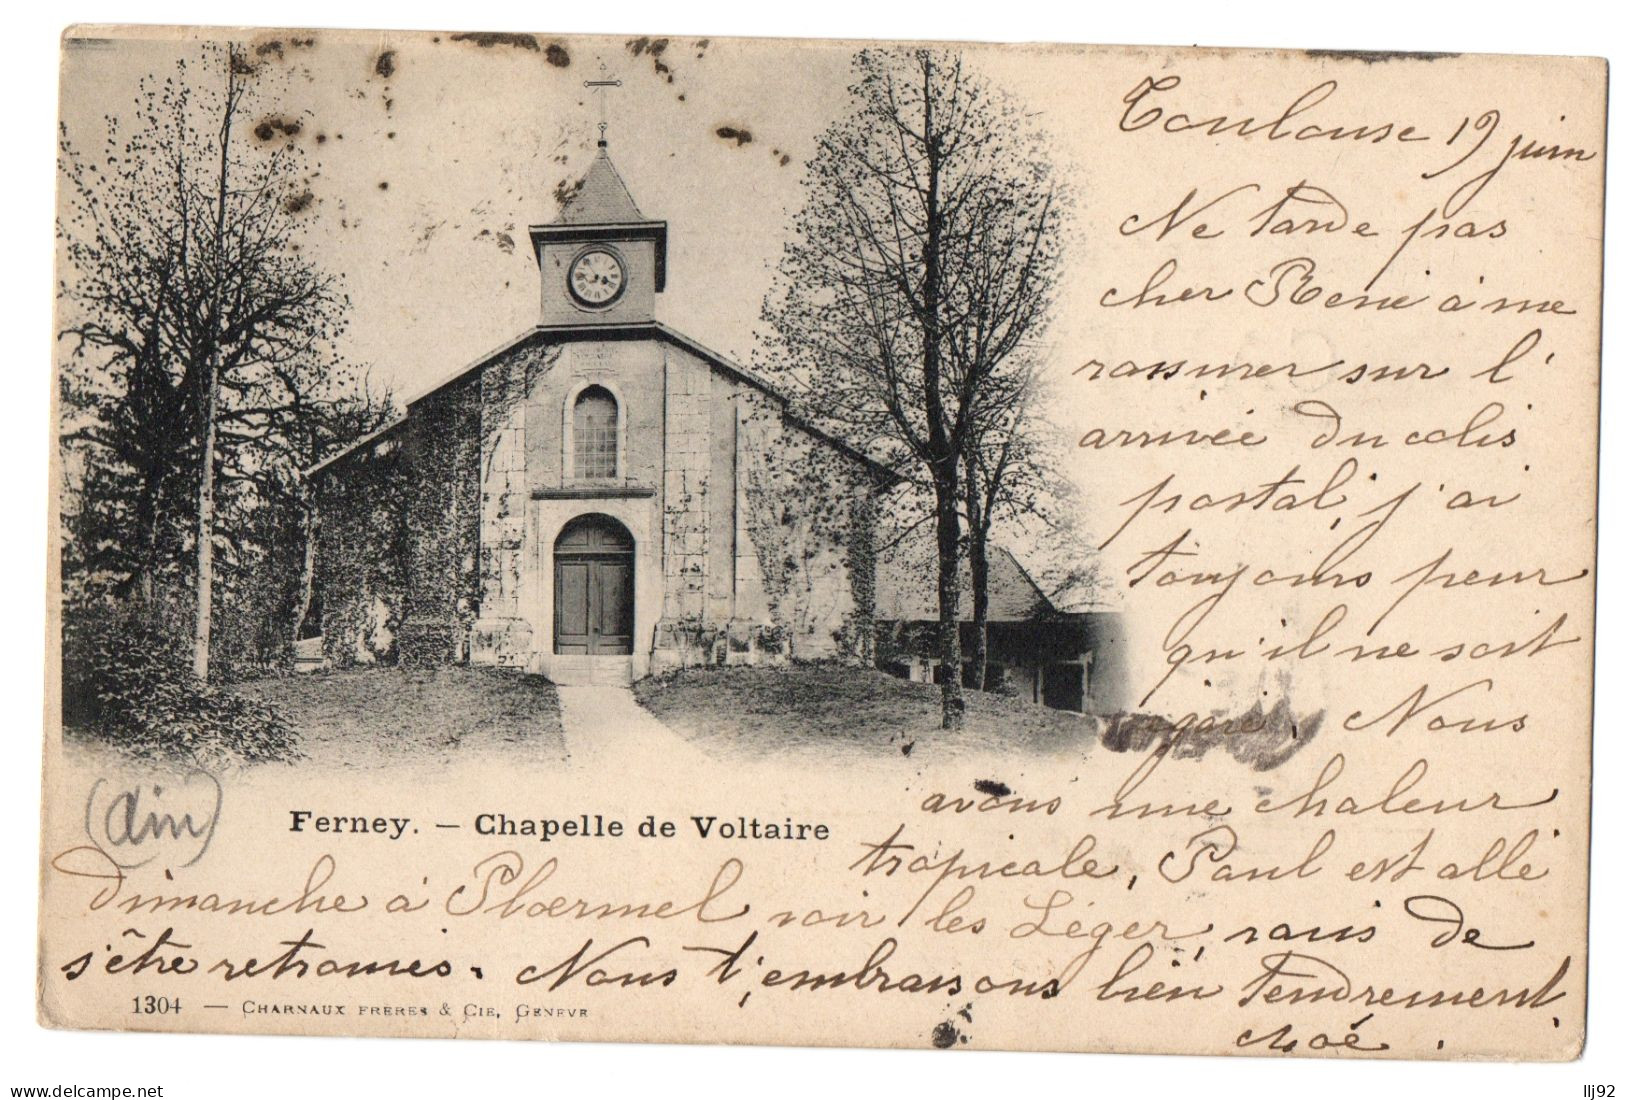 Toulouse 19 juin
Ne tarde pas
cher René à me
rassurer sur l'
arrivée du colis
postal, j'ai
toujours peur
qu'il ne soit
égaré. Nous
avons une chaleur
tropicale, Paul est allé
(Ain)
Ferney. — Chapelle de Voltaire
dimanche à Ploermel voir les Léger, ravis de
s'être retrouvés. Nous t'embrassons bien tendrement.
1304 — CHARNAUX FRÈRES & CIE, GENÈVE
llj92